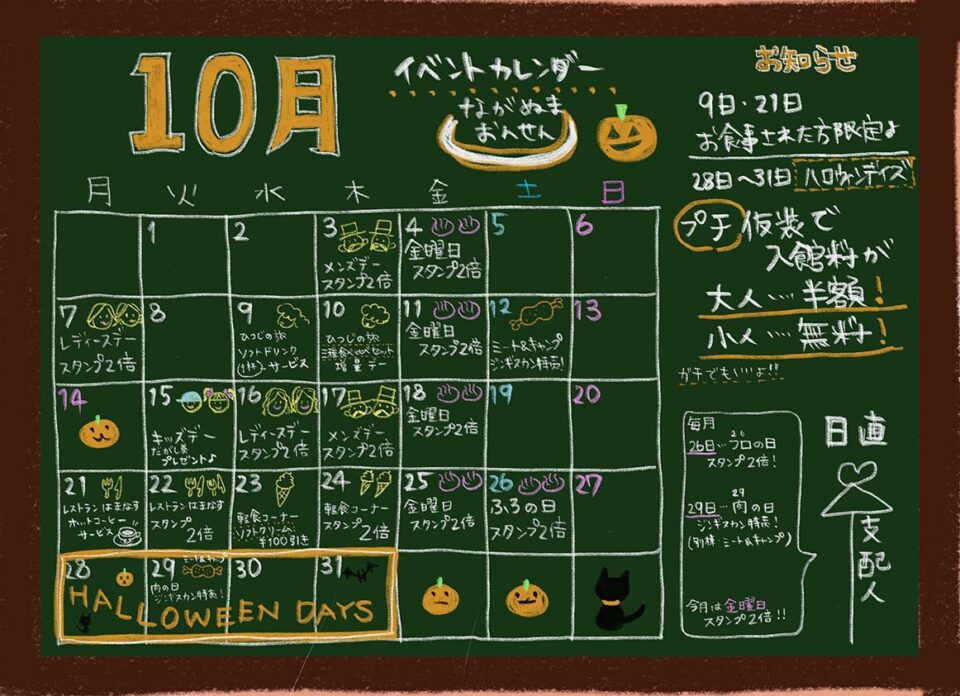 10月
イベントカレンダー
ながぬま
おんせん
月 火 水 木 金 土 日
1
2
3
メンズデー
スタンプ2倍
4
金曜日
スタンプ2倍
5
6
7
レディースデー
スタンプ2倍
8
9
ひつじの旅
ソフトドリンク
(1杯)サービス
10
ひつじの旅
三種食べ比べセット
増量デー
11
金曜日
スタンプ2倍
12
ミート&キャンプ
ジンギスカン特売!
13
14
15
キッズデー
だがし券
プレゼント♪
16
レディースデー
スタンプ2倍
17
メンズデー
スタンプ2倍
18
金曜日
スタンプ2倍
19
20
21
レストランはまなす
ホットコーヒー
サービス
22
レストランはまなす
スタンプ
2倍
23
軽食コーナー
ソフトクリーム
¥100引き
24
軽食コーナー
スタンプ
2倍
25
金曜日
スタンプ2倍
26
ふろの日
スタンプ2倍
27
28
29
ミート&キャンプ
肉の日
ジンギスカン特売!
30
31
HALLOWEEN DAYS
お知らせ
9日・21日
お食事された方限定♪
28日～31日 ハロウィンデイズ
プチ仮装で
入館料が
大人…半額!
小人…無料!
ガチでもいいよ!!
毎月
26
26日…フロの日
スタンプ2倍!
29
29日…肉の日
ジンギスカン特売!
(別棟…ミート&キャンプ)
今月は金曜日
スタンプ2倍!!
日直
支配人